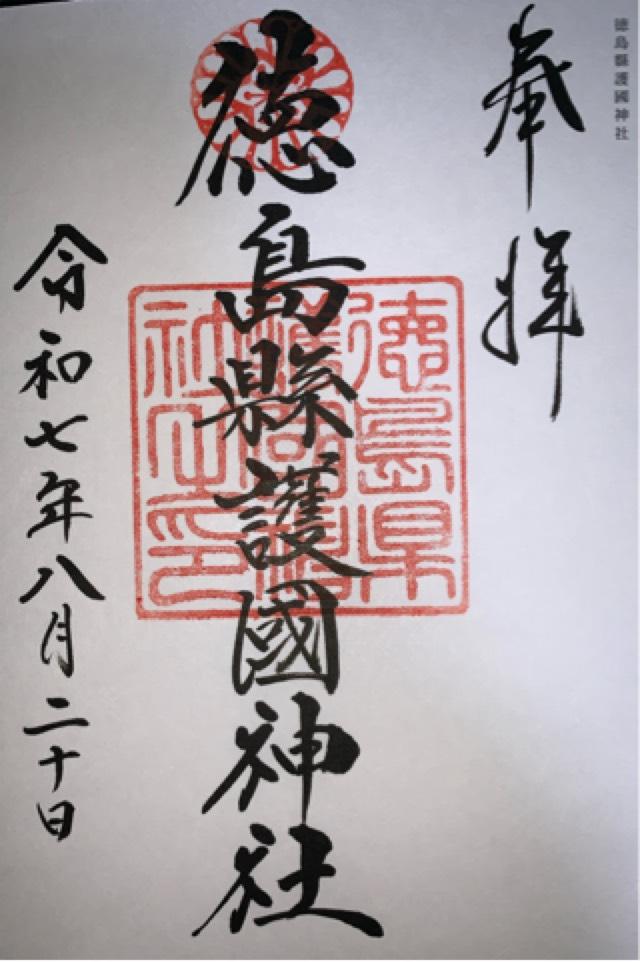 徳島縣護國神社
奉拝
徳島縣護國神社
徳島県護國神社印
令和七年八月二十日